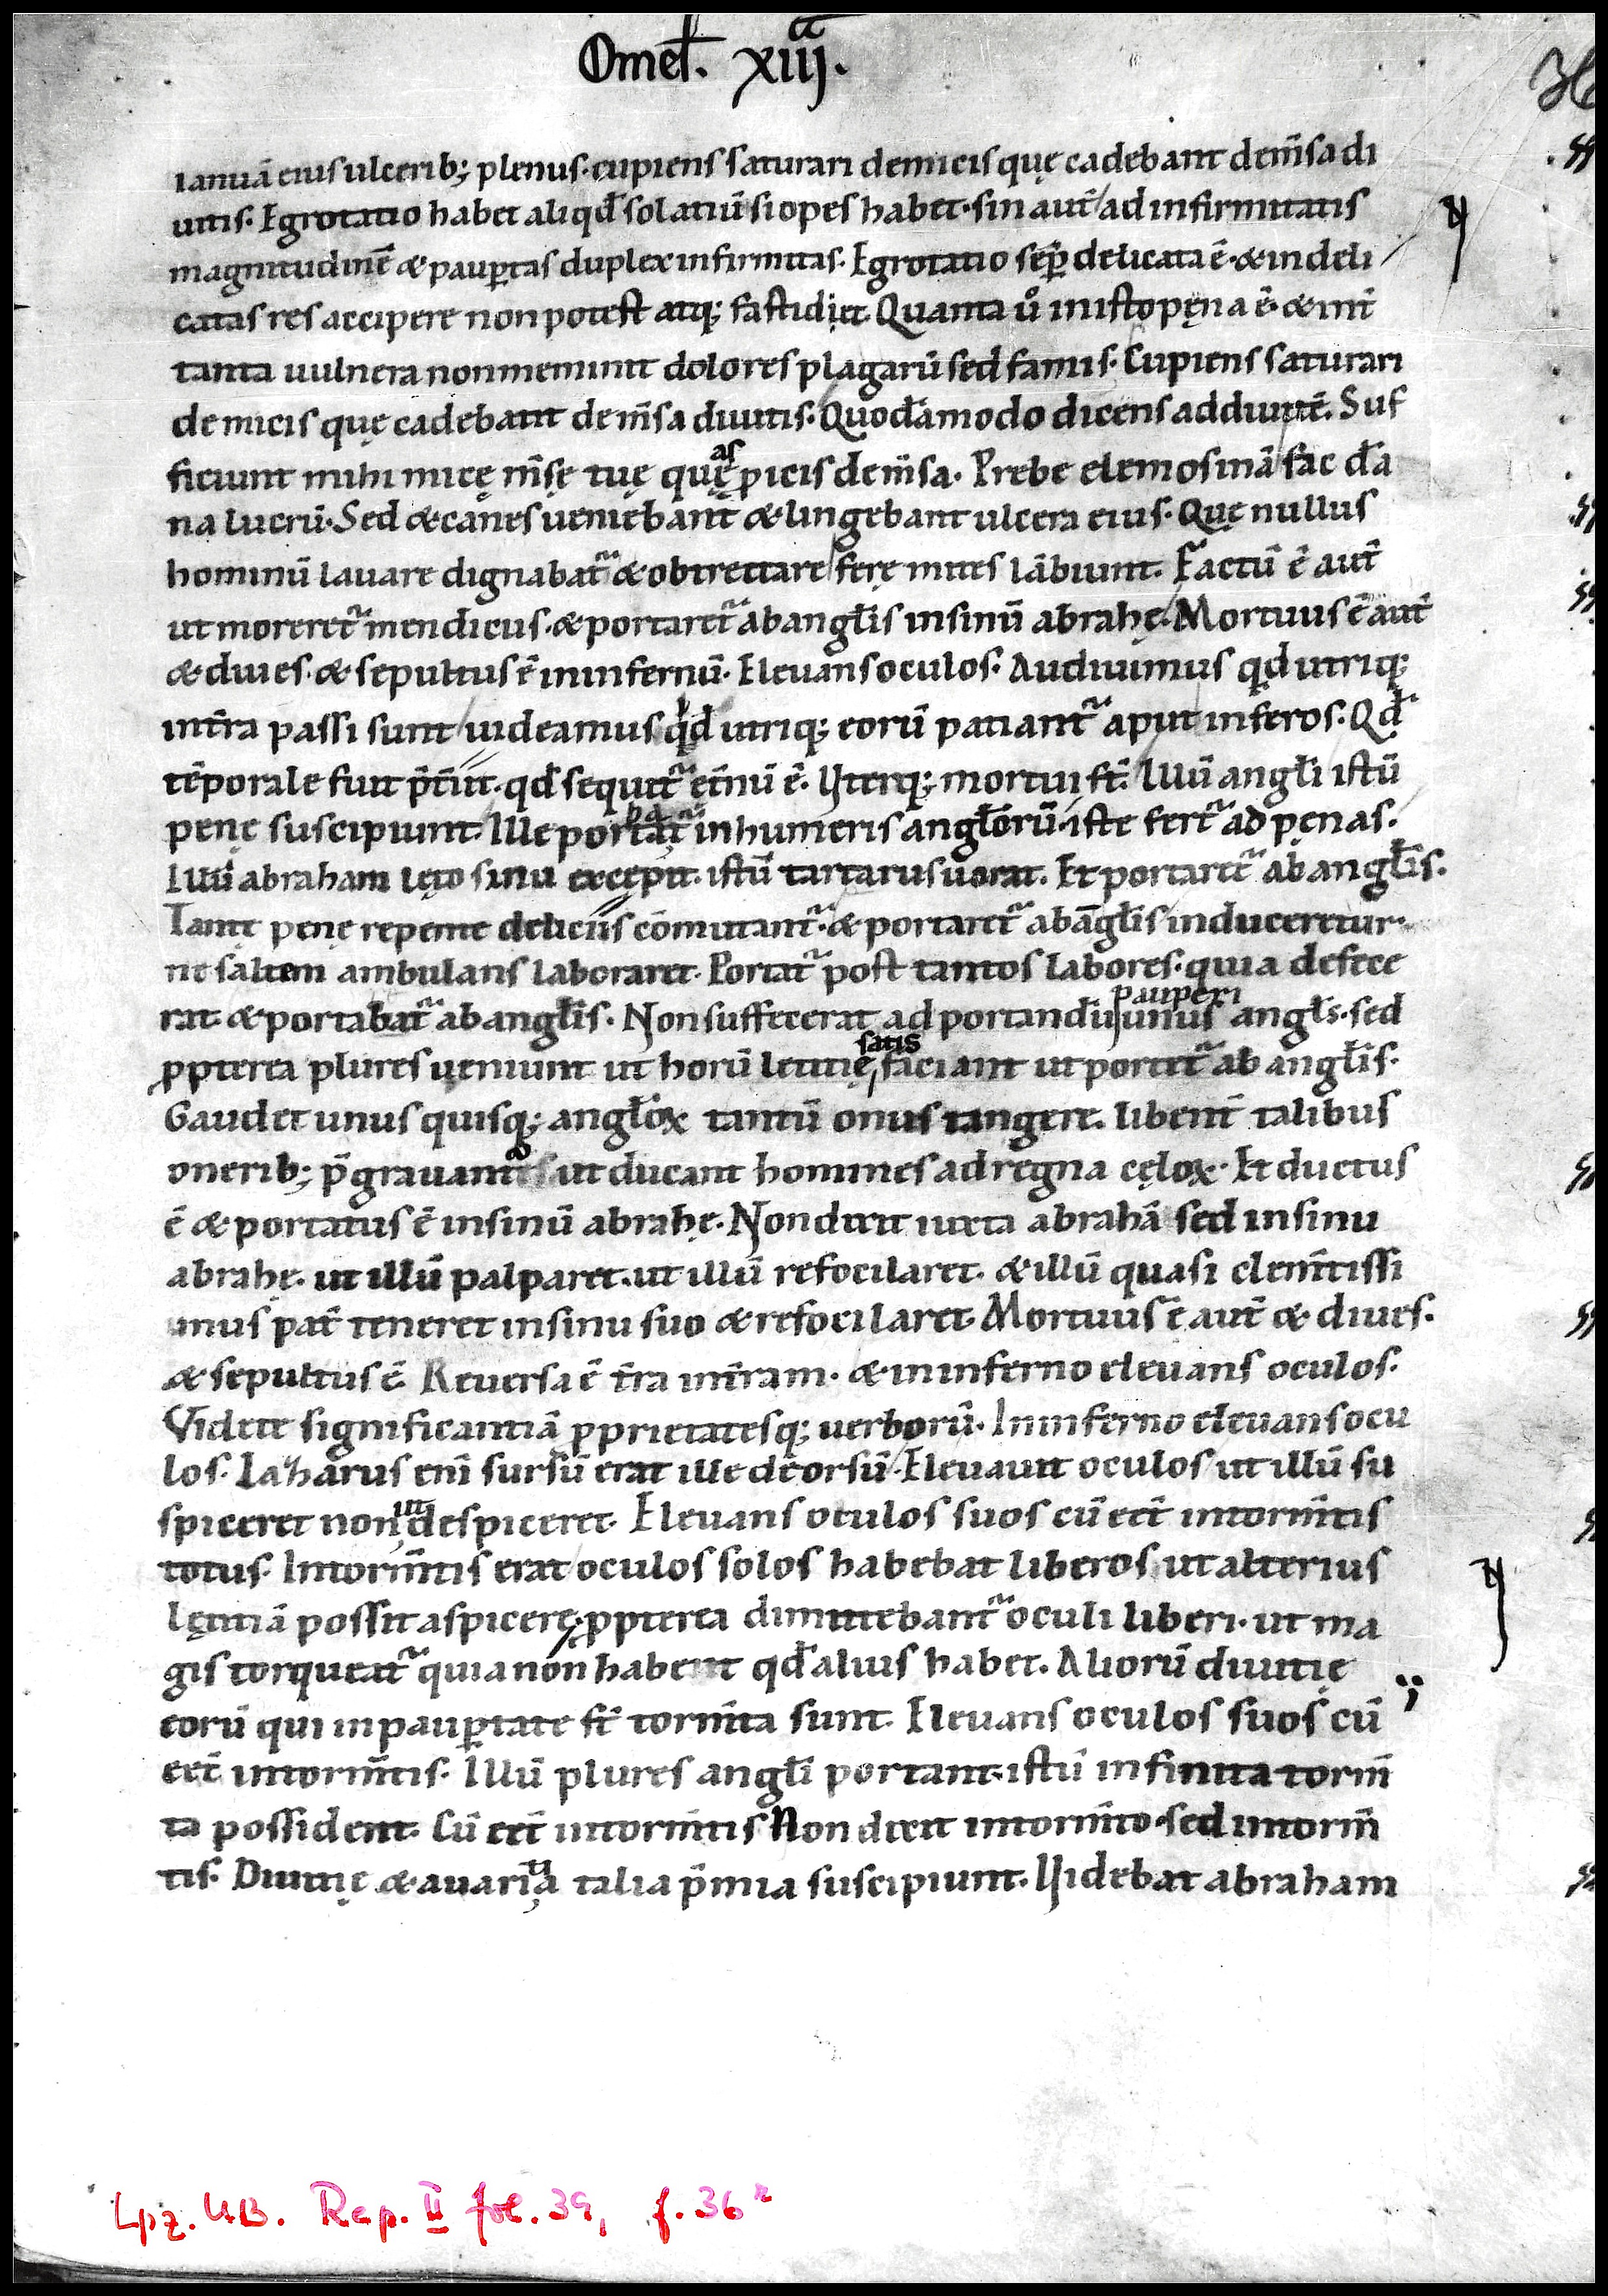 Omel̄. xiijᵃ.
36
ianuā eius ulcerib; plenus. cupiens saturari demicis quę cadebant dem̄sa di
uitis. Egrotatio habet aliqd̄ solatiū si opes habet. sin aut̄ ad infirmitatis
magnitudinē & paup̲tas duplex infirmitas. Egrotatio semp̲ delicata ē. & in deli
catas res accipere non potest atq; fastidiet. Quanta ů in isto pęna ē. & int̄
tanta uulnera non meminit dolores plagarū sed famis. Cupiens saturari
de micis quę cadebant de m̄sa diuitis. Quodāmodo dicens ad diuitē. Suf
ficiunt mihi micę m̄sę tuę quas p̲icis de m̄sa. Prebe elemosinā fac da
na lucrū. Sed & canes ueniebant & lingebant ulcera eius. Quę nullus
hominū lauare dignabat᷑ & obtrettare ferę mites lābiunt. Factū ē aut̄
ut moreret᷑ mendicus. & portaret᷑ ab angl̄is in sinū abrahę. Mortuus ē aut̄
& diues. & sepultus ē in infernū. Eleuans oculos. Audiuimus qd utriq;
int̄ra passi sunt uideamus qd utriq; eorū patiant᷑ aput inferos. Qd̄
tēporale fuit p̄t̄iit. qd̄ sequit᷑ et̄nū ē. Uterq; mortui st̄. Illū angl̄i istū
penę suscipiunt. Ille portat᷑ in humeris angl̄orū. iste fert᷑ ad pęnas.
Illū abraham lęto sinu excępit. istū tartarus uorat. Et portaret᷑ ab angl̄is.
Tantę penę repente deliciis cōmutant᷑. & portaret᷑ ab āgl̄is induceretur.
ne saltem ambulans laboraret. Portat᷑ post tantos labores. quia defece
rat. & portabat᷑ ab angl̄is. Non suffecerat ad portandū pauperi unus angl̄s. sed
p̲pterea plures ueniunt ut horū letitię satis faciant ut portet᷑ ab angl̄is.
Gaudet unus quisq; angl̄oꝝ tantū onus tangere. libent̄ talibus
onerib; p̄grauant᷑ ut ducant homines ad regna cęloꝝ. Et ductus
ē & portatus ē in sinū abrahę. Non dixit iuxta abrahā sed in sinu
abrahę. ut illū palparet. ut illū refocilaret. & illū quasi clem̄tissi
mus pat̄ teneret in sinu suo & refocilaret. Mortuus ē aut̄ & diues.
& sepultus ē. Reuersa ē t̄ra int̄ram. & in inferno eleuans oculos.
Videte significantiā p̲prietatesq; uerborū. In inferno eleuans ocu
los. Lazarus enī sursū erat ille deorsū. Eleuauit oculos ut illū su
spiceret non ut despiceret. Eleuans oculos suos cū eēt̄ in torm̄tis
totus. In torm̄tis erat oculos solos habebat liberos ut alterius
lętitiā possit aspicere. p̲pterea dimittebant᷑ oculi liberi. ut ma
gis torqueat᷑ quia non habent qd̄ alius habet. Aliorū diuitię
eorū qui in paup̲tate st̄ torm̄ta sunt. Eleuans oculos suos cū
eēt̄ in torm̄tis. Illū plures angl̄i portant. istū infinita torm̄
ta possident. Cū eēt̄ in torm̄tis Non dixit in torm̄to. sed in torm̄
tis. Diuitię & auaritia talia p̄mia suscipiunt. Uidebat abraham
Lpz. UB. Rep. II fol. 39, f. 36ʳ